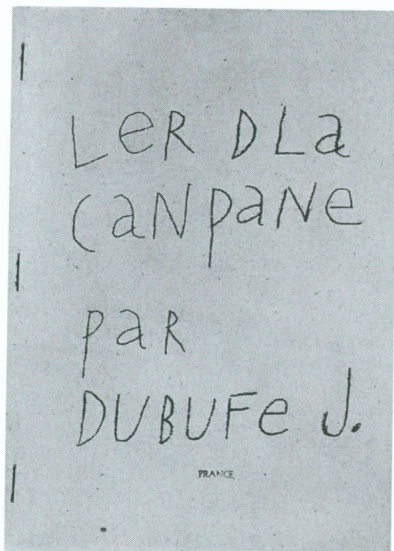 LeR DLa
CaNpaNe
paR
DUBUFe J.
FRANCE